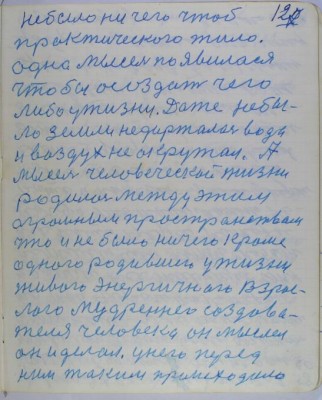 127
небыло ни чего чтоб
практического жило.
одна мысел появилася
что бы осоздат чего
либо у жизни. Даже небы-
ло земли недержалая вода
и воздух не окружал. А
мысел человеческой жизни
родилася между этим
огромным пространствам
что и не было ничего кроме
одного родившего у жизни
живого энергичного взрос-
лого мудренего создова-
теля человека он мыслел
он и делал. у него перед
ним таким происходило